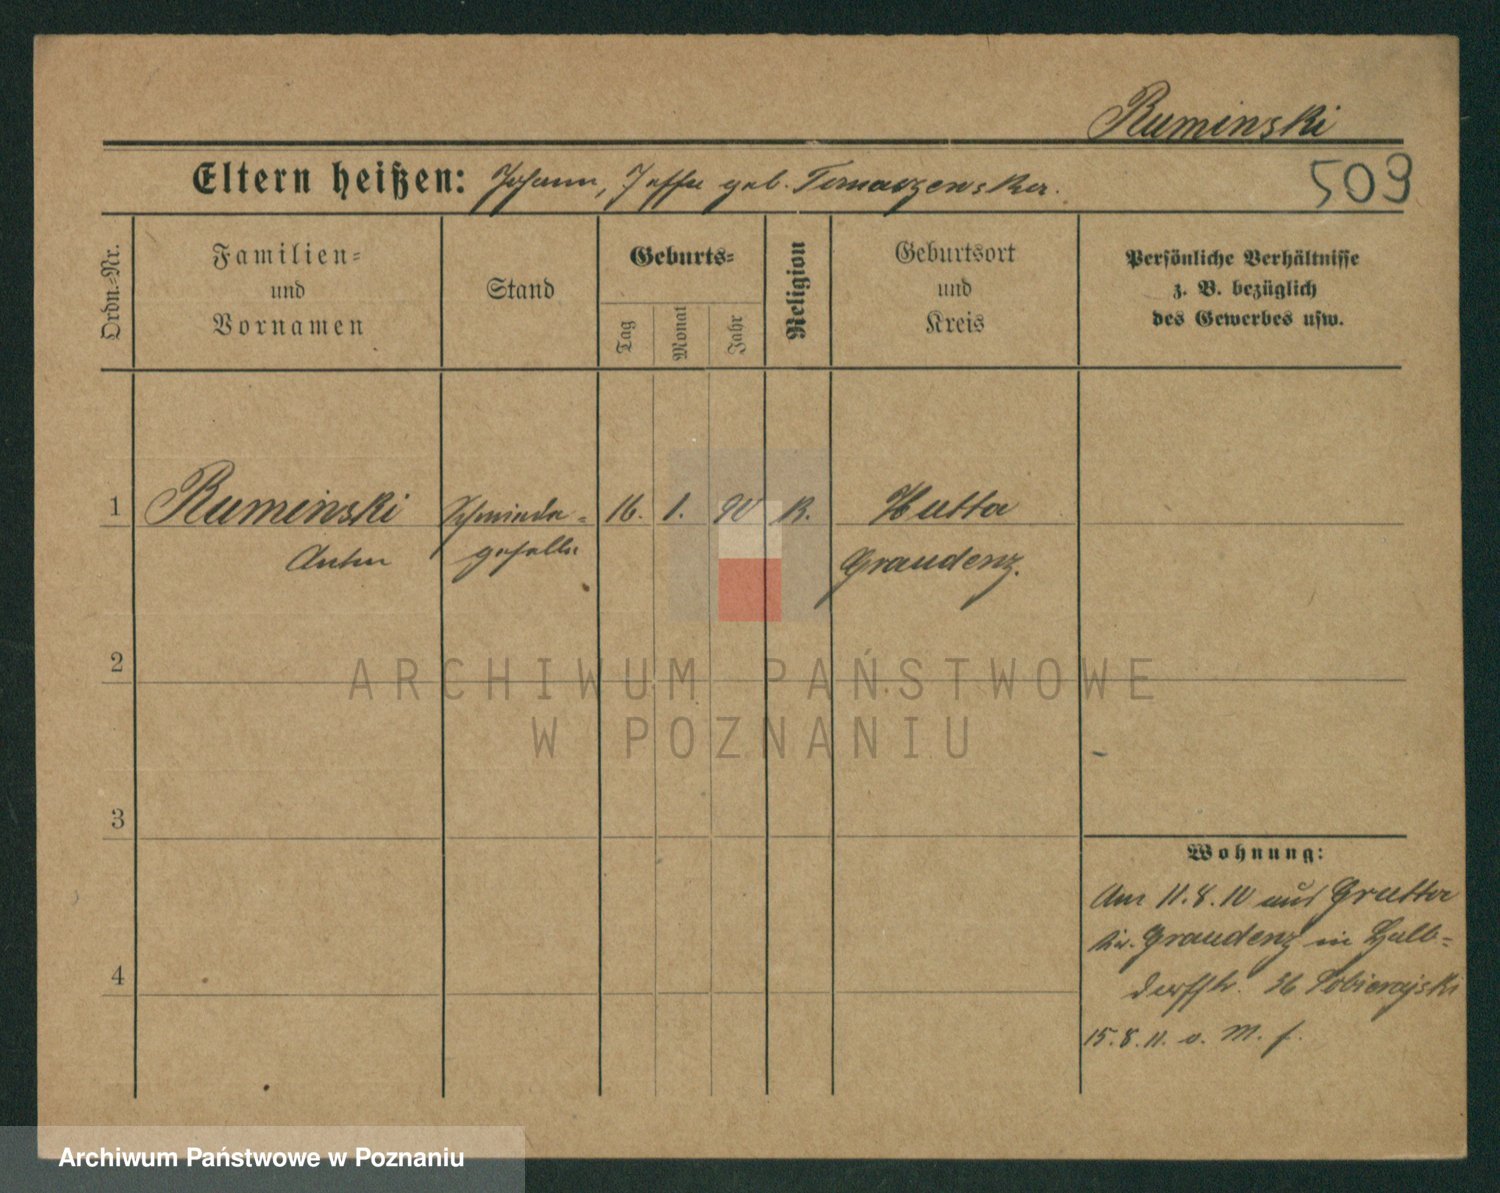 Ruminski
Eltern heißen: Johann, geb. Tomaszewska.
509
Ordn.-Nr.
Familien-
und
Vornamen
Stand
Geburts-
Tag
Monat
Jahr
Religion
Geburtsort
und
Kreis
Persönliche Verhältnisse
z. B. bezüglich
des Gewerbes usw.
1 Ruminski Schmiede- 16. 1. 90 K. Hutta
Anton geselle Graudenz.
2
3
4
Wohnung:
Am 11.8.10 aus Grutta
Kr. Graudenz in Halb-
dorfstr. 36 Sobierajski
15.8.11. v. M. f.
ARCHIWUM PAŃSTWOWE
W POZNANIU
Archiwum Państwowe w Poznaniu